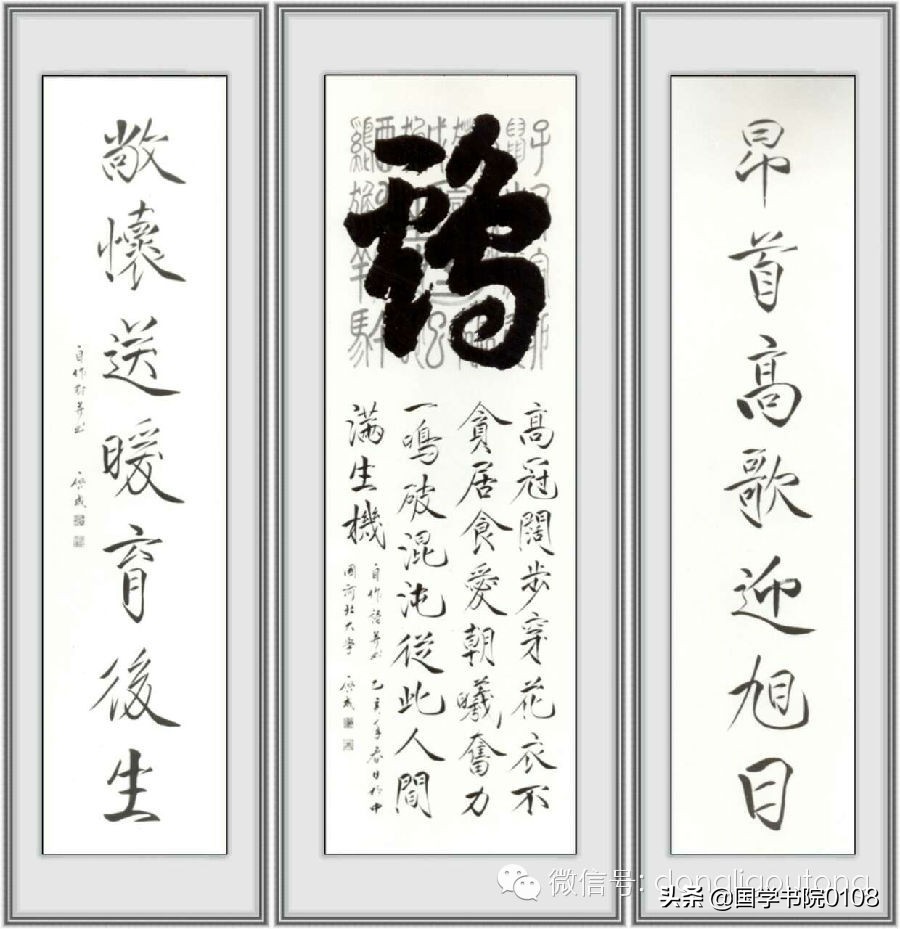 昂首高歌迎旭日
高冠闊步穿花衣不
貪居食愛朝曦奮力
一鳴破混沌從此人間
滿生機
自作詩并書 乙亥年春日於中
國河北大學
敞懷送暖育後生
自作對并書
微信号: dongligoutong
头条 @国学书院0108